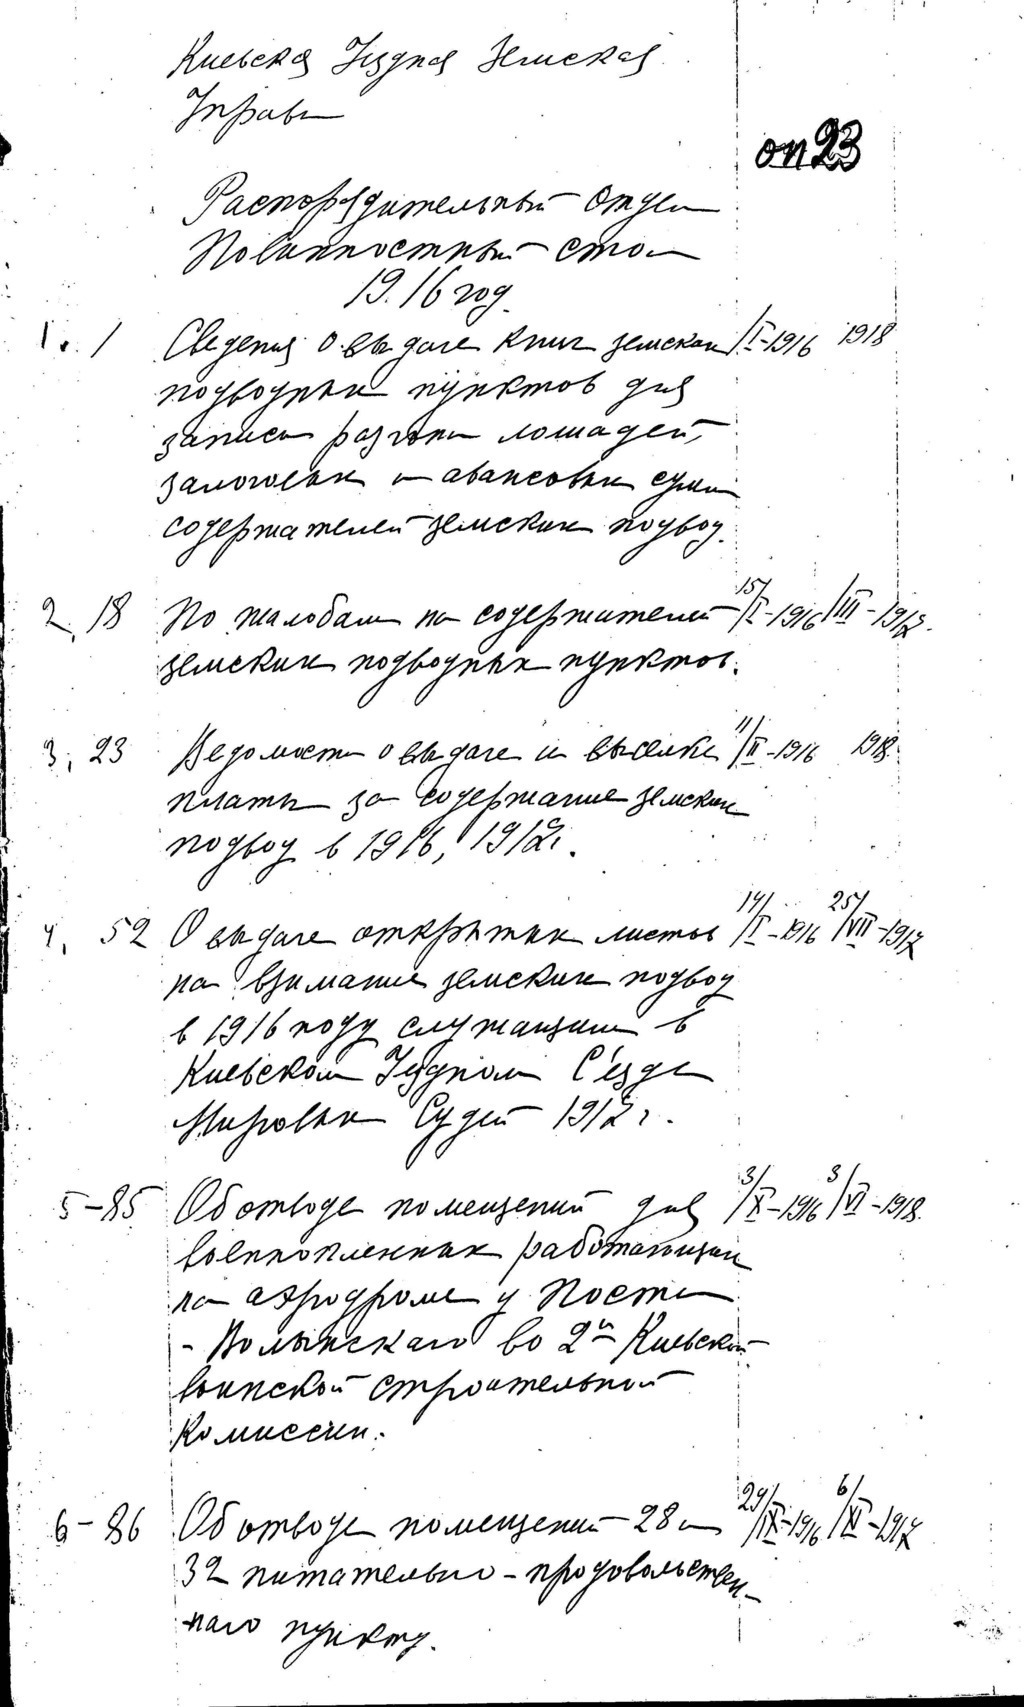 Киевская Уездная Земская
Управа
оп 23
Распорядительный отдел
Повинностный стол
1916 год
1. 1 Сведения о выдаче книг земским I-1916 1918
подводных пунктов для
записи разгона лошадей,
залоговых и авансовых сумм
содержателей земских подвод.
2, 18 По жалобам на содержателей 15/I-1916 /III-1917.
земских подводных пунктов.
3, 23 Ведомости о выдаче и высылке 11/II-1916 1918.
платы за содержание земских
подвод в 1916, 1917г.
4, 52 О выдаче открытых листов 14/I-1916 25/VII-1917
на взимание земских подвод
в 1916 году служащим в
Киевском Уездном С'езде
Мировых Судей 1917 г.
5-85 Об отводе помещений для 3/X-1916 3/VI-1918.
военнопленных работающих
на аэродроме у Поста
- Волынскаго во 2й Киевской
воинской строительной
Комиссии.
6-86 Об отводе помещений 28 и 29/IX-1916 6/XI-1917
32 питательно-продовольствен-
наго пункту.